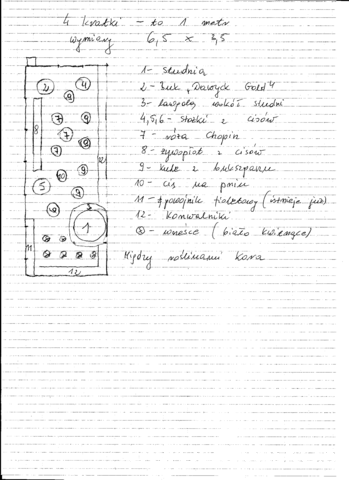 4 kratki - to 1 metr
wymiary 6,5 x 3,5
1 - studnia
2 - Buk "Dawyck Gold"
3 - wokół studni
4,5,6 - stożki z cisów
7 - róża Chopin
8 - żywopłot z cisów
9 - kule z bukszpanu
10 - cis na pniu
11 - powojnik fioletowy (istnieje już)
12 - Konwalniki
⊗ - (biało kwitnące)
Między roślinami kora
2
4
9
7
9
8
7
9
7
9
12
10
9
5
9
3
1
11
12